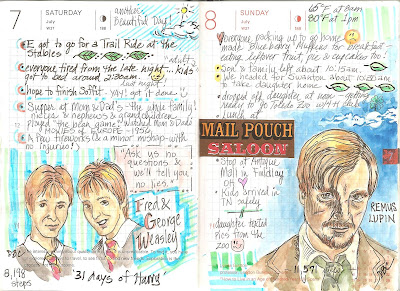 7 SATURDAY
July
another beautiful Day!
E got to go for a Trail Ride at the Stables!
everyone tired from the late night - kids
got to bed around 2:30am.
adults
last night
hope to finish Soffit - YAY! get it done
Supper at Mom & Dad's - the whole family
nieces & nephews & grandchildren
Played "the bean game". Watched Mom & Dad's
MOVIES OF EUROPE - 1956.
A few fireworks (& a minor mishap - with
no injuries)
"Ask us no
questions &
we'll tell you
no lies."
Fred &
George
Weasley
8,198
steps
"31 days of Harry"
8 SUNDAY
July
65°F at 8am
80°F at 1pm
everyone packing up to go home
made Blueberry Muffins for breakfast -
eating leftover fruit, pie & cupcakes too
Son & Family left about 10:15am.
We headed for Swanton about 10:30am
to take daughter home
dropped off daughter at noon - getting
ready
Toledo Zoo
Lunch at
MAIL POUCH
SALOON
Stop at Antique
Mall in Findlay
OH
Kids arrived in
TN safely
daughter texted
pics from the
Zoo
REMUS
LUPIN
11,571